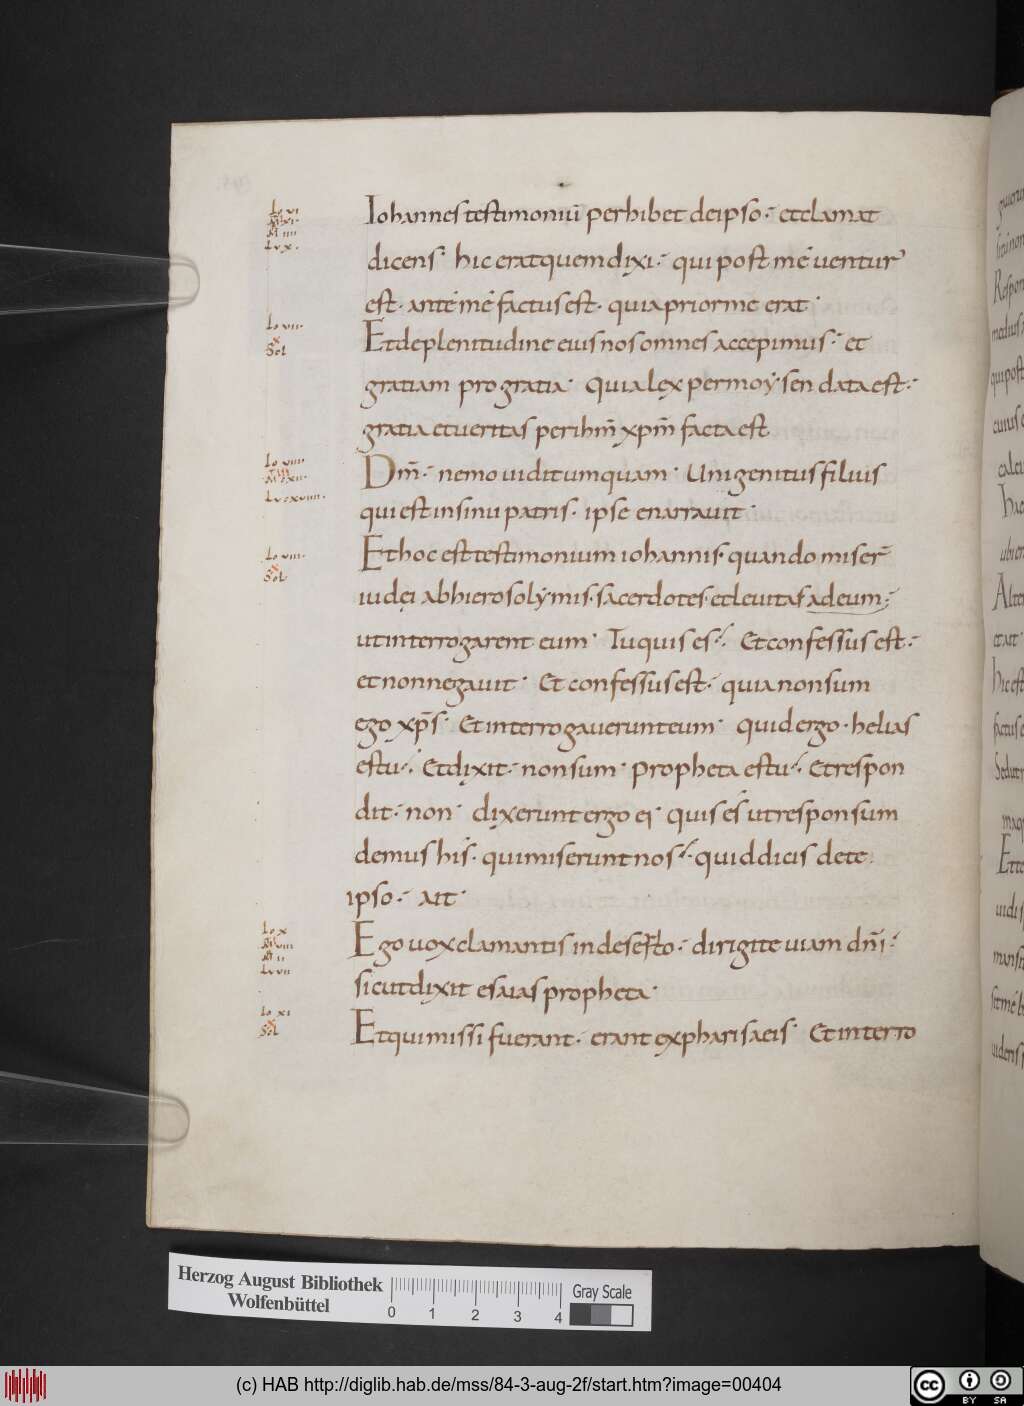 Io vi
M xi
M iiii
Lu x.
Iohannes testimoniū perhibet deipso. etclamat
dicens. hic eratquem dixi. qui post mé uentur
est. anté mé factus est. quia prior me erat.
Io vii.
X
Sol
Et deplenitudine eius nos omnes accepimus. et
gratiam pro gratia. quia lex per moẏsen data est.
gratia et ueritas per ihm̄ xpm̄ facta est
Io viii.
Dm̄. nemo uidit umquam. Unigenitus filius
qui est insinu patris. ipse enarrauit.
Io viiii.
X
Sol
Et hoc est testimonium iohannis. quando miser̄
iudęi abhierosolẏmis. sacerdotes. et leuitas adeum;
ut interrogarent eum. Tu quis es. Et confessus est.
et non negauit. Et confessus est. quia non sum
ego xp̄s. Et interrogauerunt eum. quid ergo. helias
es tu. Et dixit. non sum. propheta es tu. Et respon
dit. non. dixerunt ergo ei. quis és ut responsum
demus his. qui miserunt nos. quid dicis dete
ipso. ait.
Io x
M viii
M ii
Lu vii
Ego uox clamantis in deserto. dirigite uiam dn̄i.
sicut dixit esaias propheta.
Io xi
X
Sol
Et qui missi fuerant. erant expharisaeis. Et interro
Herzog August Bibliothek
Wolfenbüttel
0 1 2 3 4
Gray Scale
(c) HAB http://diglib.hab.de/mss/84-3-aug-2f/start.htm?image=00404
cc BY SA